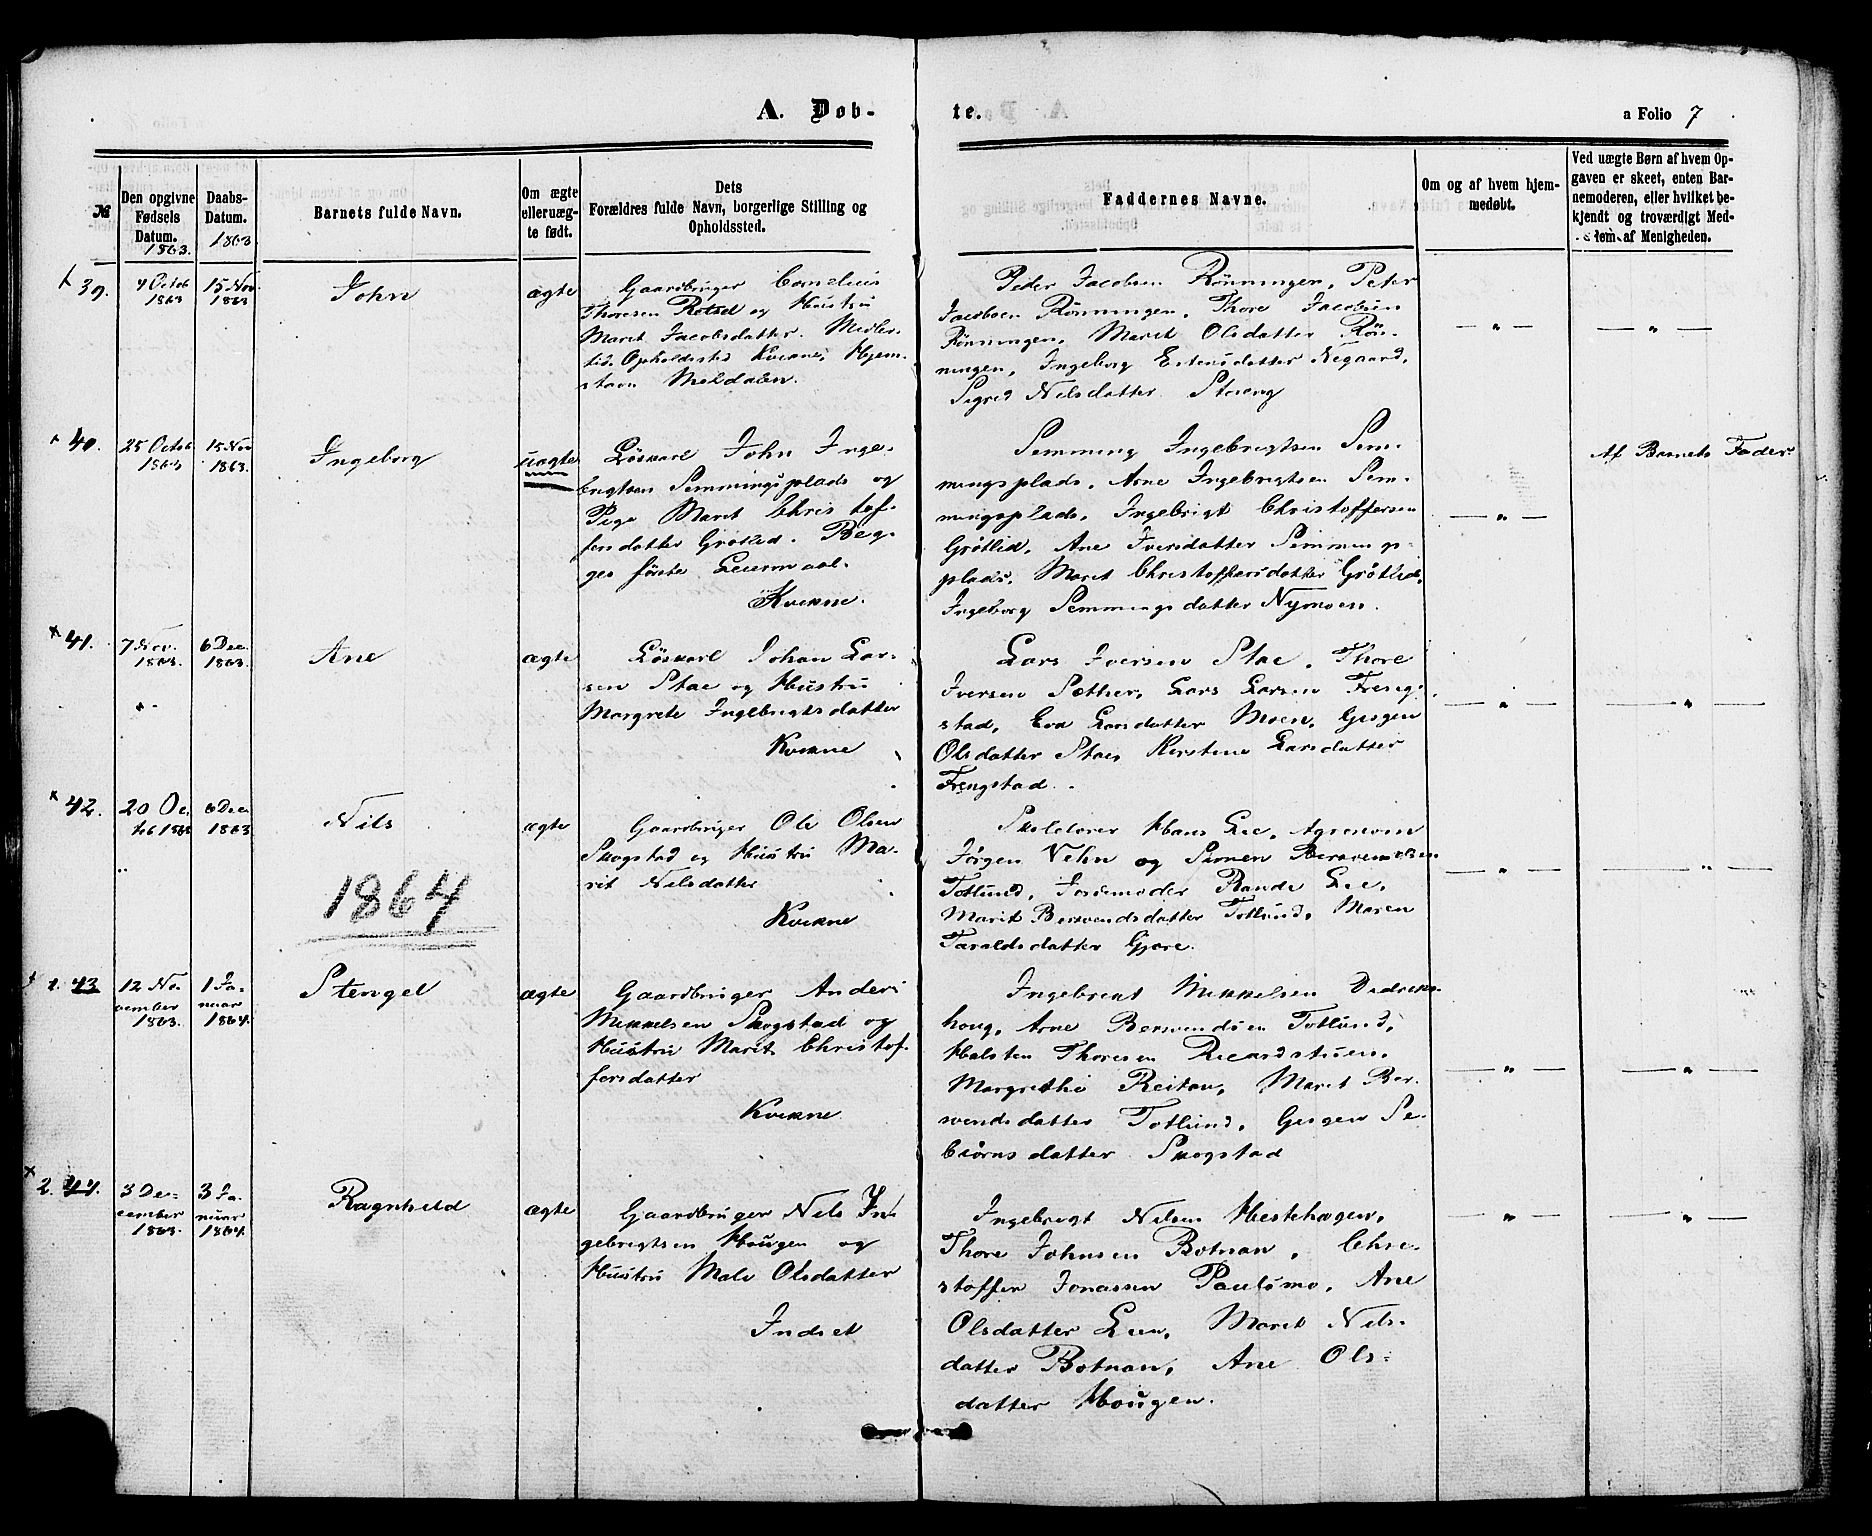 A. Døb-
te.
a Folio 7
№
Den opgivne Fødsels Datum. 1863.
Daabs-Datum. 1863
Barnets fulde Navn.
Om ægte elleruæg-te født.
Dets Forældres fulde Navn, borgerlige Stilling og Opholdssted.
Faddernes Navne.
Om og af hvem hjem-medøbt.
Ved uægte Børn af hvem Op-gaven er skeet, enten Bar-nemoderen, eller hvilket be-kjendt og troværdigt Med-lem af Menigheden.
39.
4 Octob 1863
15 Nov 1863
John
ægte
Gaardbruger Cornelius
Thoresen og Hustru
Marit Jacobsdatter. Midler-
tid. Opholdssted Kvikne, Hjem-
stavn Meldalen.
Peder Jacobsen Rönningen, Peter
Jacobsen Rönningen, Thore Jacobsen
Rönningen, Marit Olsdatter Rön-
ningen, Ingeborg Estensdatter Negaard,
Sigrid Nilsdatter Stueng
— " —
— " —
40.
25 Octob 1863
15 Nov 1863.
Ingeborg
uægte
Löskarl John Inge-
brigtsen Semmingsplads og
Pige Marit Christof-
fersdatter Grötlid. Beg-
ges förste Leiermaal.
Kvikne.
Semming Ingebrigtsen Sem-
mingsplads, Arne Ingebrigtsen Sem-
mingsplads, Ingebrigt Christoffersen
Grötlid, Ane Iversdatter Semmings-
plads, Marit Christoffersdatter Grötlid,
Ingeborg Semmingsdatter Nymoen.
— " —
Af Barnets Fader
41.
7 Nov. 1863.
6 Dec. 1863.
Ane
ægte
Löskarl Johan Lar-
sen Stae og Hustru
Margrete Ingebrigtsdatter
Kvikne
Lars Iversen Stae, Thore
Iversen Sæther, Lars Larsen Freng-
stad, Eva Larsdatter Moen, Gjøgen
Olsdatter Stae, Kerstine Larsdatter
Frengstad.
— " —
— " —
42.
20 Oc-tob 1863
6 Dec 1863
Nils
ægte
Gaardbruger Ole Olsen
Skogstad og Hustru Ma-
rit Nilsdatter
Kvikne
Skolelærer Hans Lie, Agronom
Jörgen Vehn og Simen Bersvendsen
Totlund, Jordemoder Rande Lie,
Marit Bersvendsdatter Totlund, Maren
Taraldsdatter Gjøre.
— " —
— " —
1864
1. 43
12 No-vember 1863.
1 Ja-nuar 1864.
Stengel
ægte
Gaardbruger Anders
Mikkelsen Skogstad og
Hustru Marit Christof-
fersdatter
Kvikne
Ingebrikt Mikkelsen Didriks-
houg, Arne Bersvendsen Totlund,
Halsten Thoresen Ricardstuen,
Margrethe Reitan, Marit Ber-
svendsdatter Totlund, Gjøgen Se-
biörnsdatter Skogstad
— " —
— " —
2. 44.
3 De-cember 1863.
3 Ja-nuar 1864.
Ragnhild
ægte
Gaardbruger Nils In-
gebrigtsen Hougen og
Hustru Mali Olsdatter
Indset
Ingebrigt Nilsen Hestehagen,
Thore Johnsen Botnan, Chri-
stoffer Jonassen Paulsmo, Ane
Olsdatter Lien, Marit Nils-
datter Botnan, Ane Ols-
datter Hougen.
— " —
— " —